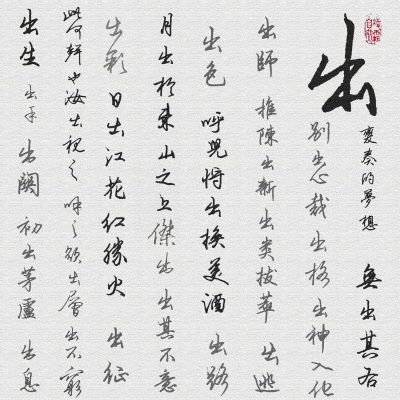 出
變奏的夢想 無出其右
別出心裁 出格 出神入化
出師 推陳出新 出类拔萃 出逃
出色 呼兒将出換美酒 出路
月出於東山之上 傑出 出其不意
出彩 日出江花红勝火 出征
此何聲也汝出視之 呼之欲出 層出不窮
出生 出手 出闕 初出茅廬 出息